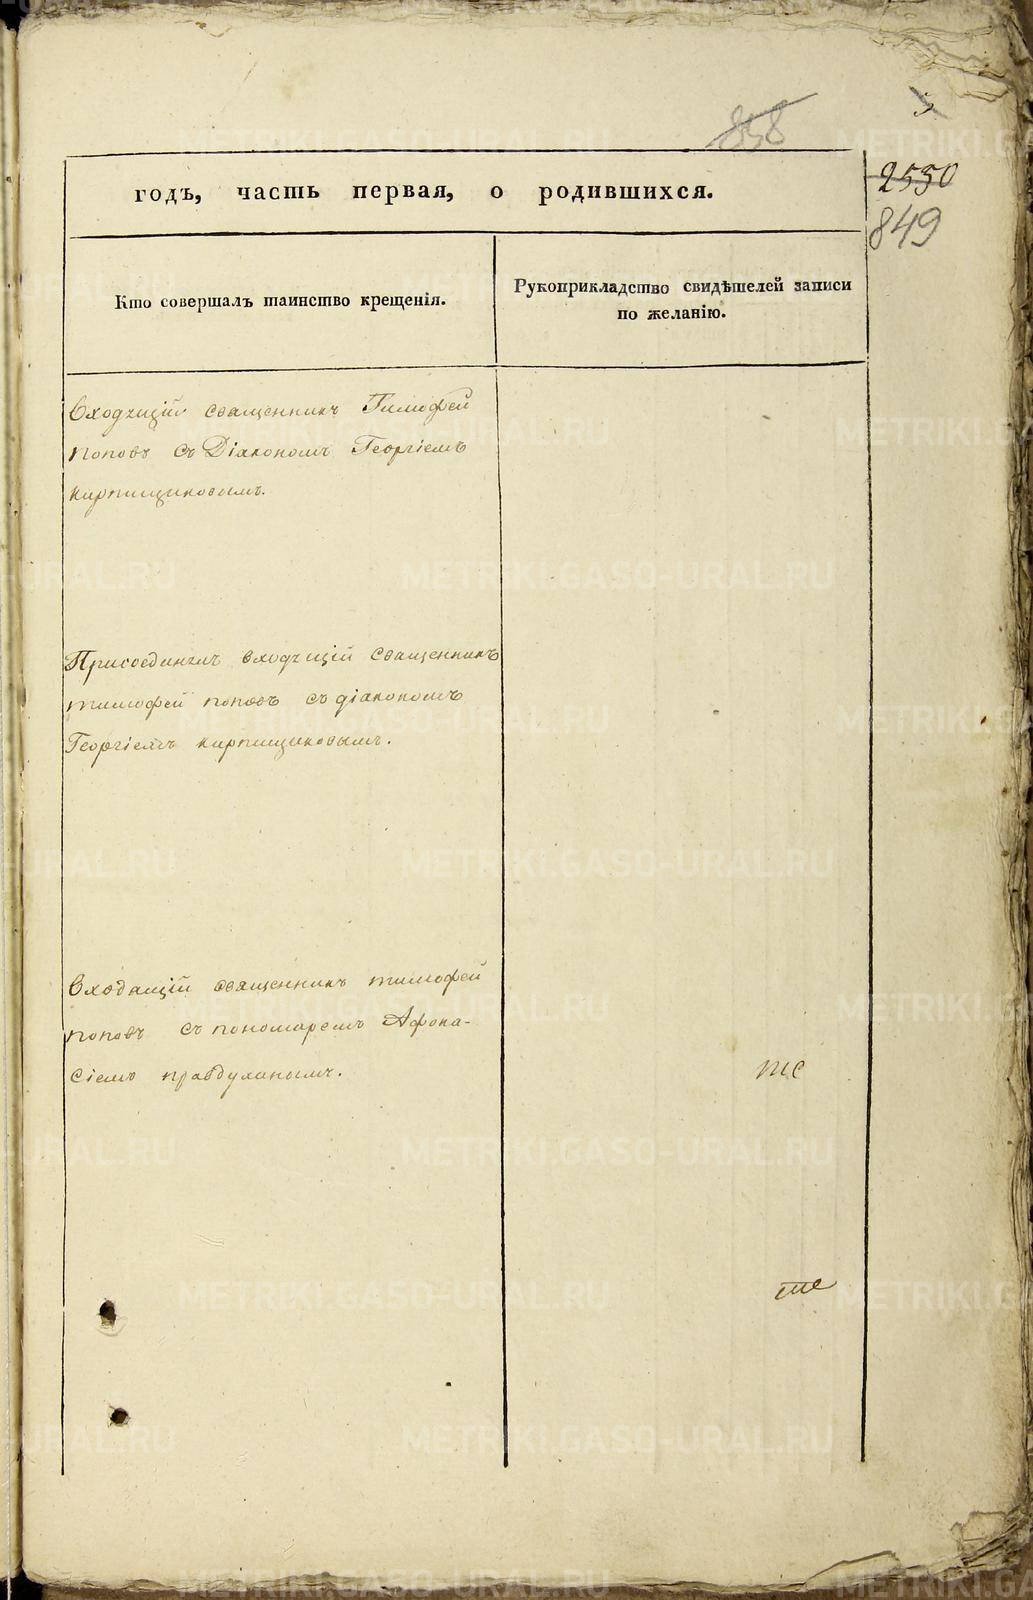 858
5
2550
849
годъ, часть первая, о родившихся.
Кто совершалъ таинство крещенія.
Рукоприкладство свидѣтелей записи
по желанію.
Входящій священникъ Тимофей
поповъ съ Діакономъ Георгіемъ
кирпищиковымъ.
Присоединилъ входящій священникъ
тимофей поповъ съ діакономъ
Георгіемъ кирпищиковымъ.
Входящій священникъ тимофей
поповъ съ пономаремъ Афона-
сіемъ правдухинымъ.
METRIKI.GASO-URAL.RU